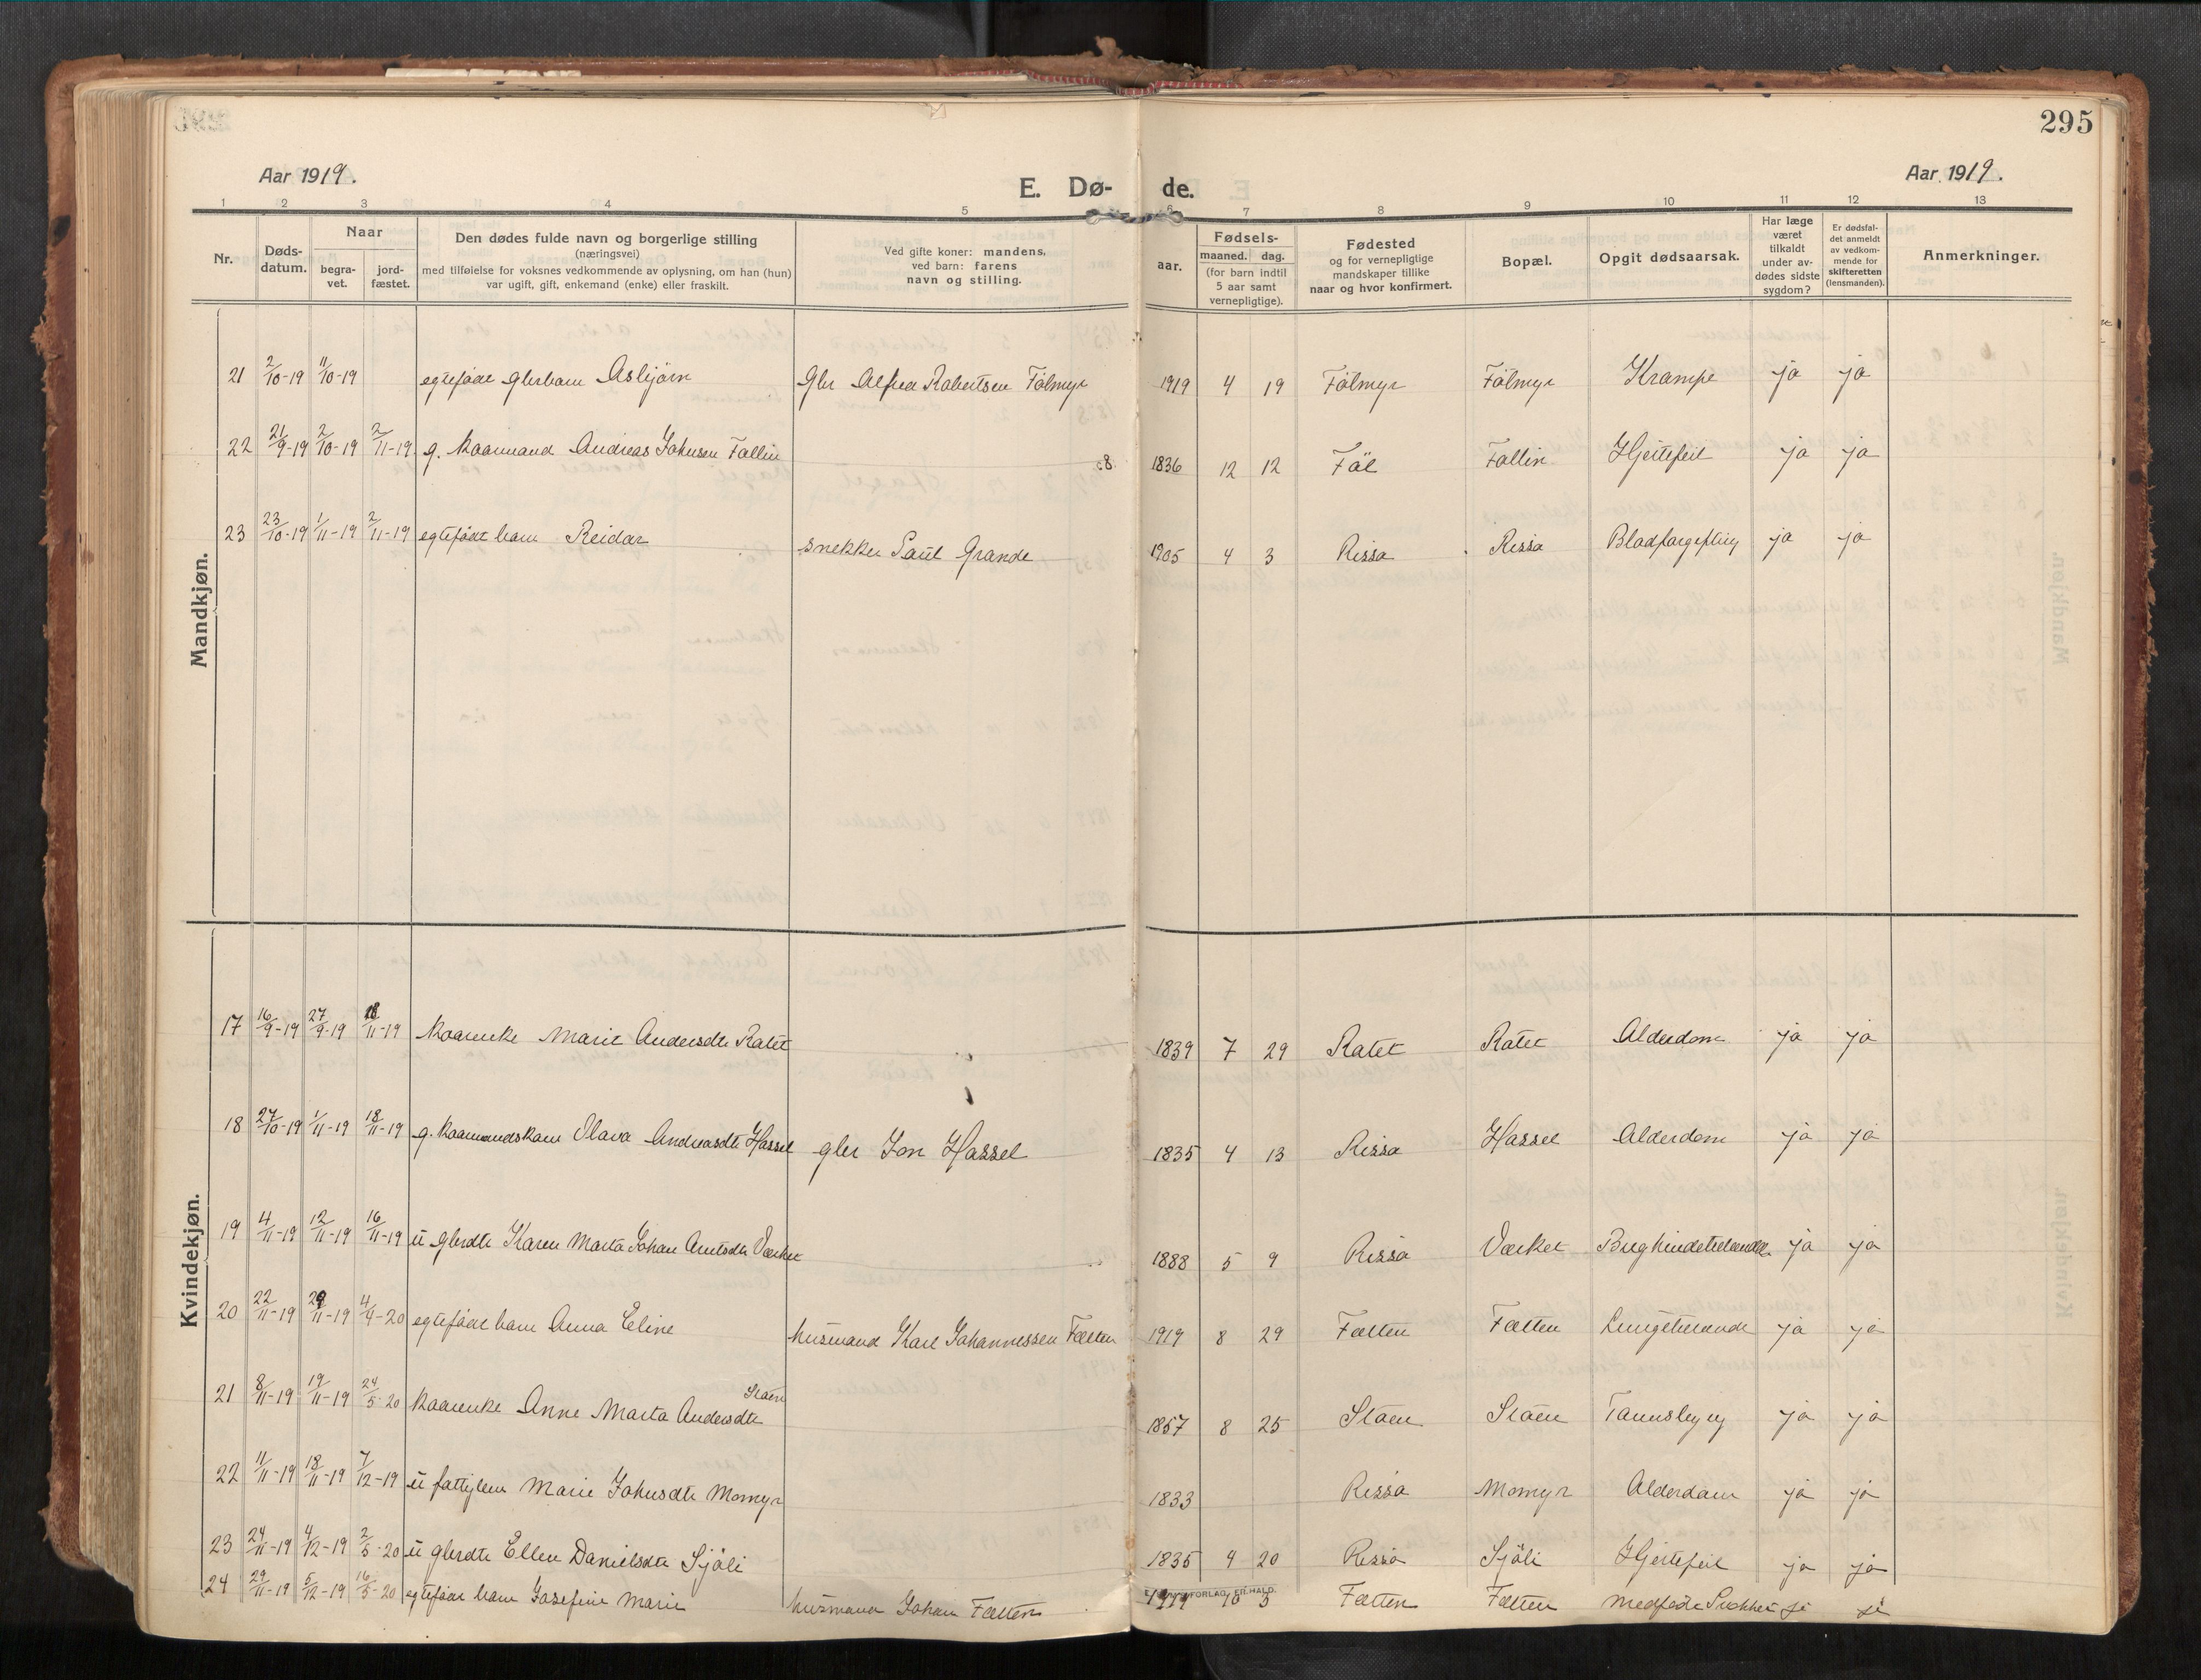 295
Aar 1919.
E. Dø-
de.
Aar 1919.
1 2 3 4 5 6 7 8 9 10 11 12 13
Nr.
Døds-
datum.
Naar
begra-
vet.
jord-
fæstet.
Den dødes fulde navn og borgerlige stilling
(næringsvei)
med tilføielse for voksnes vedkommende av oplysning, om han (hun)
var ugift, gift, enkemand (enke) eller fraskilt.
Ved gifte koner: mandens,
ved barn: farens
navn og stilling.
aar.
Fødsels-
maaned. dag.
(for barn indtil
5 aar samt
vernepligtige).
Fødested
og for vernepligtige
mandskaper tillike
naar og hvor konfirmert.
Bopæl.
Opgit dødsaarsak.
Har læge
været
tilkaldt
under av-
dødes sidste
sygdom?
Er dødsfal-
det anmeldt
av vedkom-
mende for
skifteretten
(lensmanden).
Anmerkninger.
Mandkjøn.
21 2/10-19 11/10-19 egtefødt gbrbarn Asbjørn Gbr Alfred Robertsen Fölmyr 1919 4 19 Fölmyr Fölmyr Krampe ja ja
22 21/9-19 2/10-19 2/11-19 g. kaarmand Andreas Johnsen Fallin 1836 12 12 Föl Fallin Hjertefeil ja ja
23 23/10-19 1/11-19 2/11-19 egtefødt barn Reidar snekker Paul Grande 1905 4 3 Rissa Rissa ja ja
Kvindekjøn.
17 16/9-19 27/9-19 11-19 kaarenke Marie Andersdtr Ratet 1839 7 29 Ratet Ratet Alderdom ja ja
18 27/10-19 1/11-19 18/11-19 g. kaarmandskone Olava Andreasdtr Hassel gbr Jon Hassel 1835 4 13 Rissa Hassel Alderdom ja ja
19 4/11-19 12/11-19 16/11-19 ü gbrdtr Karen Marta Johan Værket 1888 5 9 Rissa Værket ja ja
20 22/11-19 29/11-19 4/4-20 egtefødt barn Anna Eline husmand Karl Johannessen Fætten 1919 8 29 Fætten Fætten ja ja
21 8/11-19 19/11-19 24/5-20 kaarenke Anne Marta Andersdtr Staen 1857 8 25 Staen Staen ja ja
22 11/11-19 18/11-19 7/12-19 ü fattiglem Marie Johnsdtr Momyr 1833 Rissa Momyr Alderdom ja ja
23 24/11-19 4/12-19 2/5-20 ü gbrdtr Ellen Danielsdtr Sjöli 1835 4 20 Rissa Sjöli Hjertefeil ja ja
24 29/11-19 5/12-19 16/5-20 egtefødt barn Josefine Marie husmand Johan Fætten 1919 10 5 Fætten Fætten ja ja